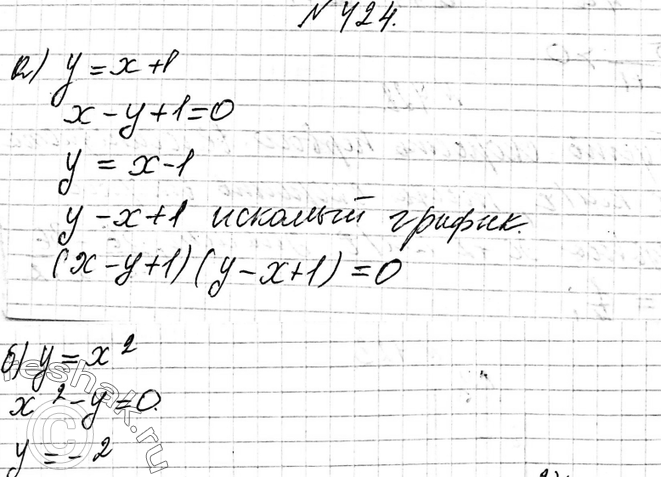 №424.
а) y = x + 1
x - y + 1 = 0
y = x - 1
y - x + 1 искомый график.
(x - y + 1)(y - x + 1) = 0
б) y = x²
x² - y = 0.
y = - 2